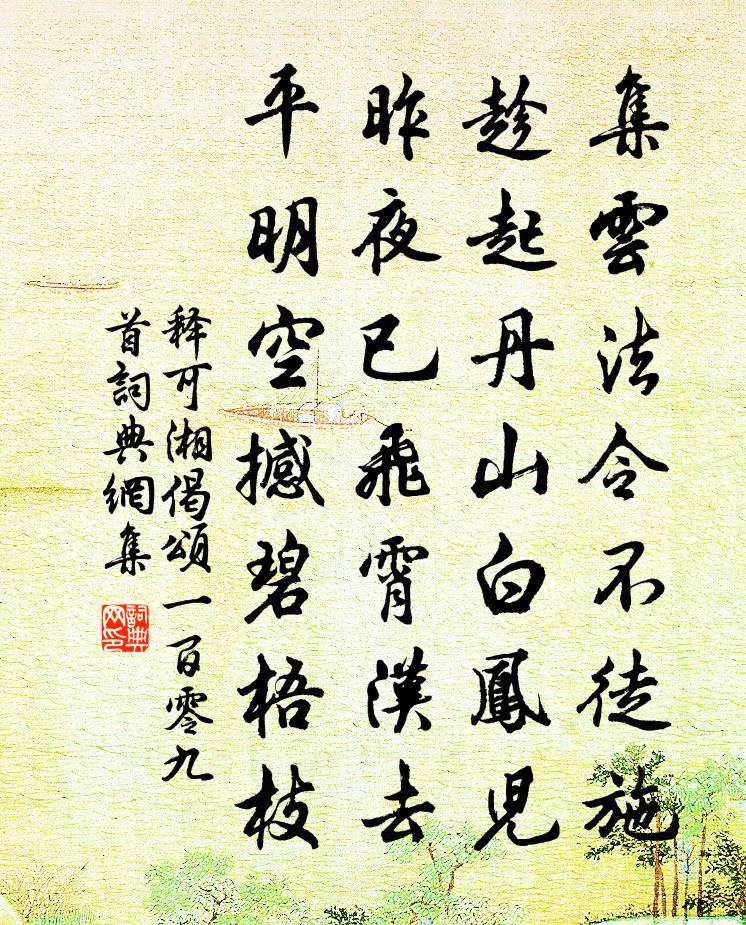 集雲法令不徒施
趁起丹山白鳳児
昨夜已飛霄漢去
平明空撼碧梧枝
释可湘偈頌一百零九
首詞典網集
詞典
网印